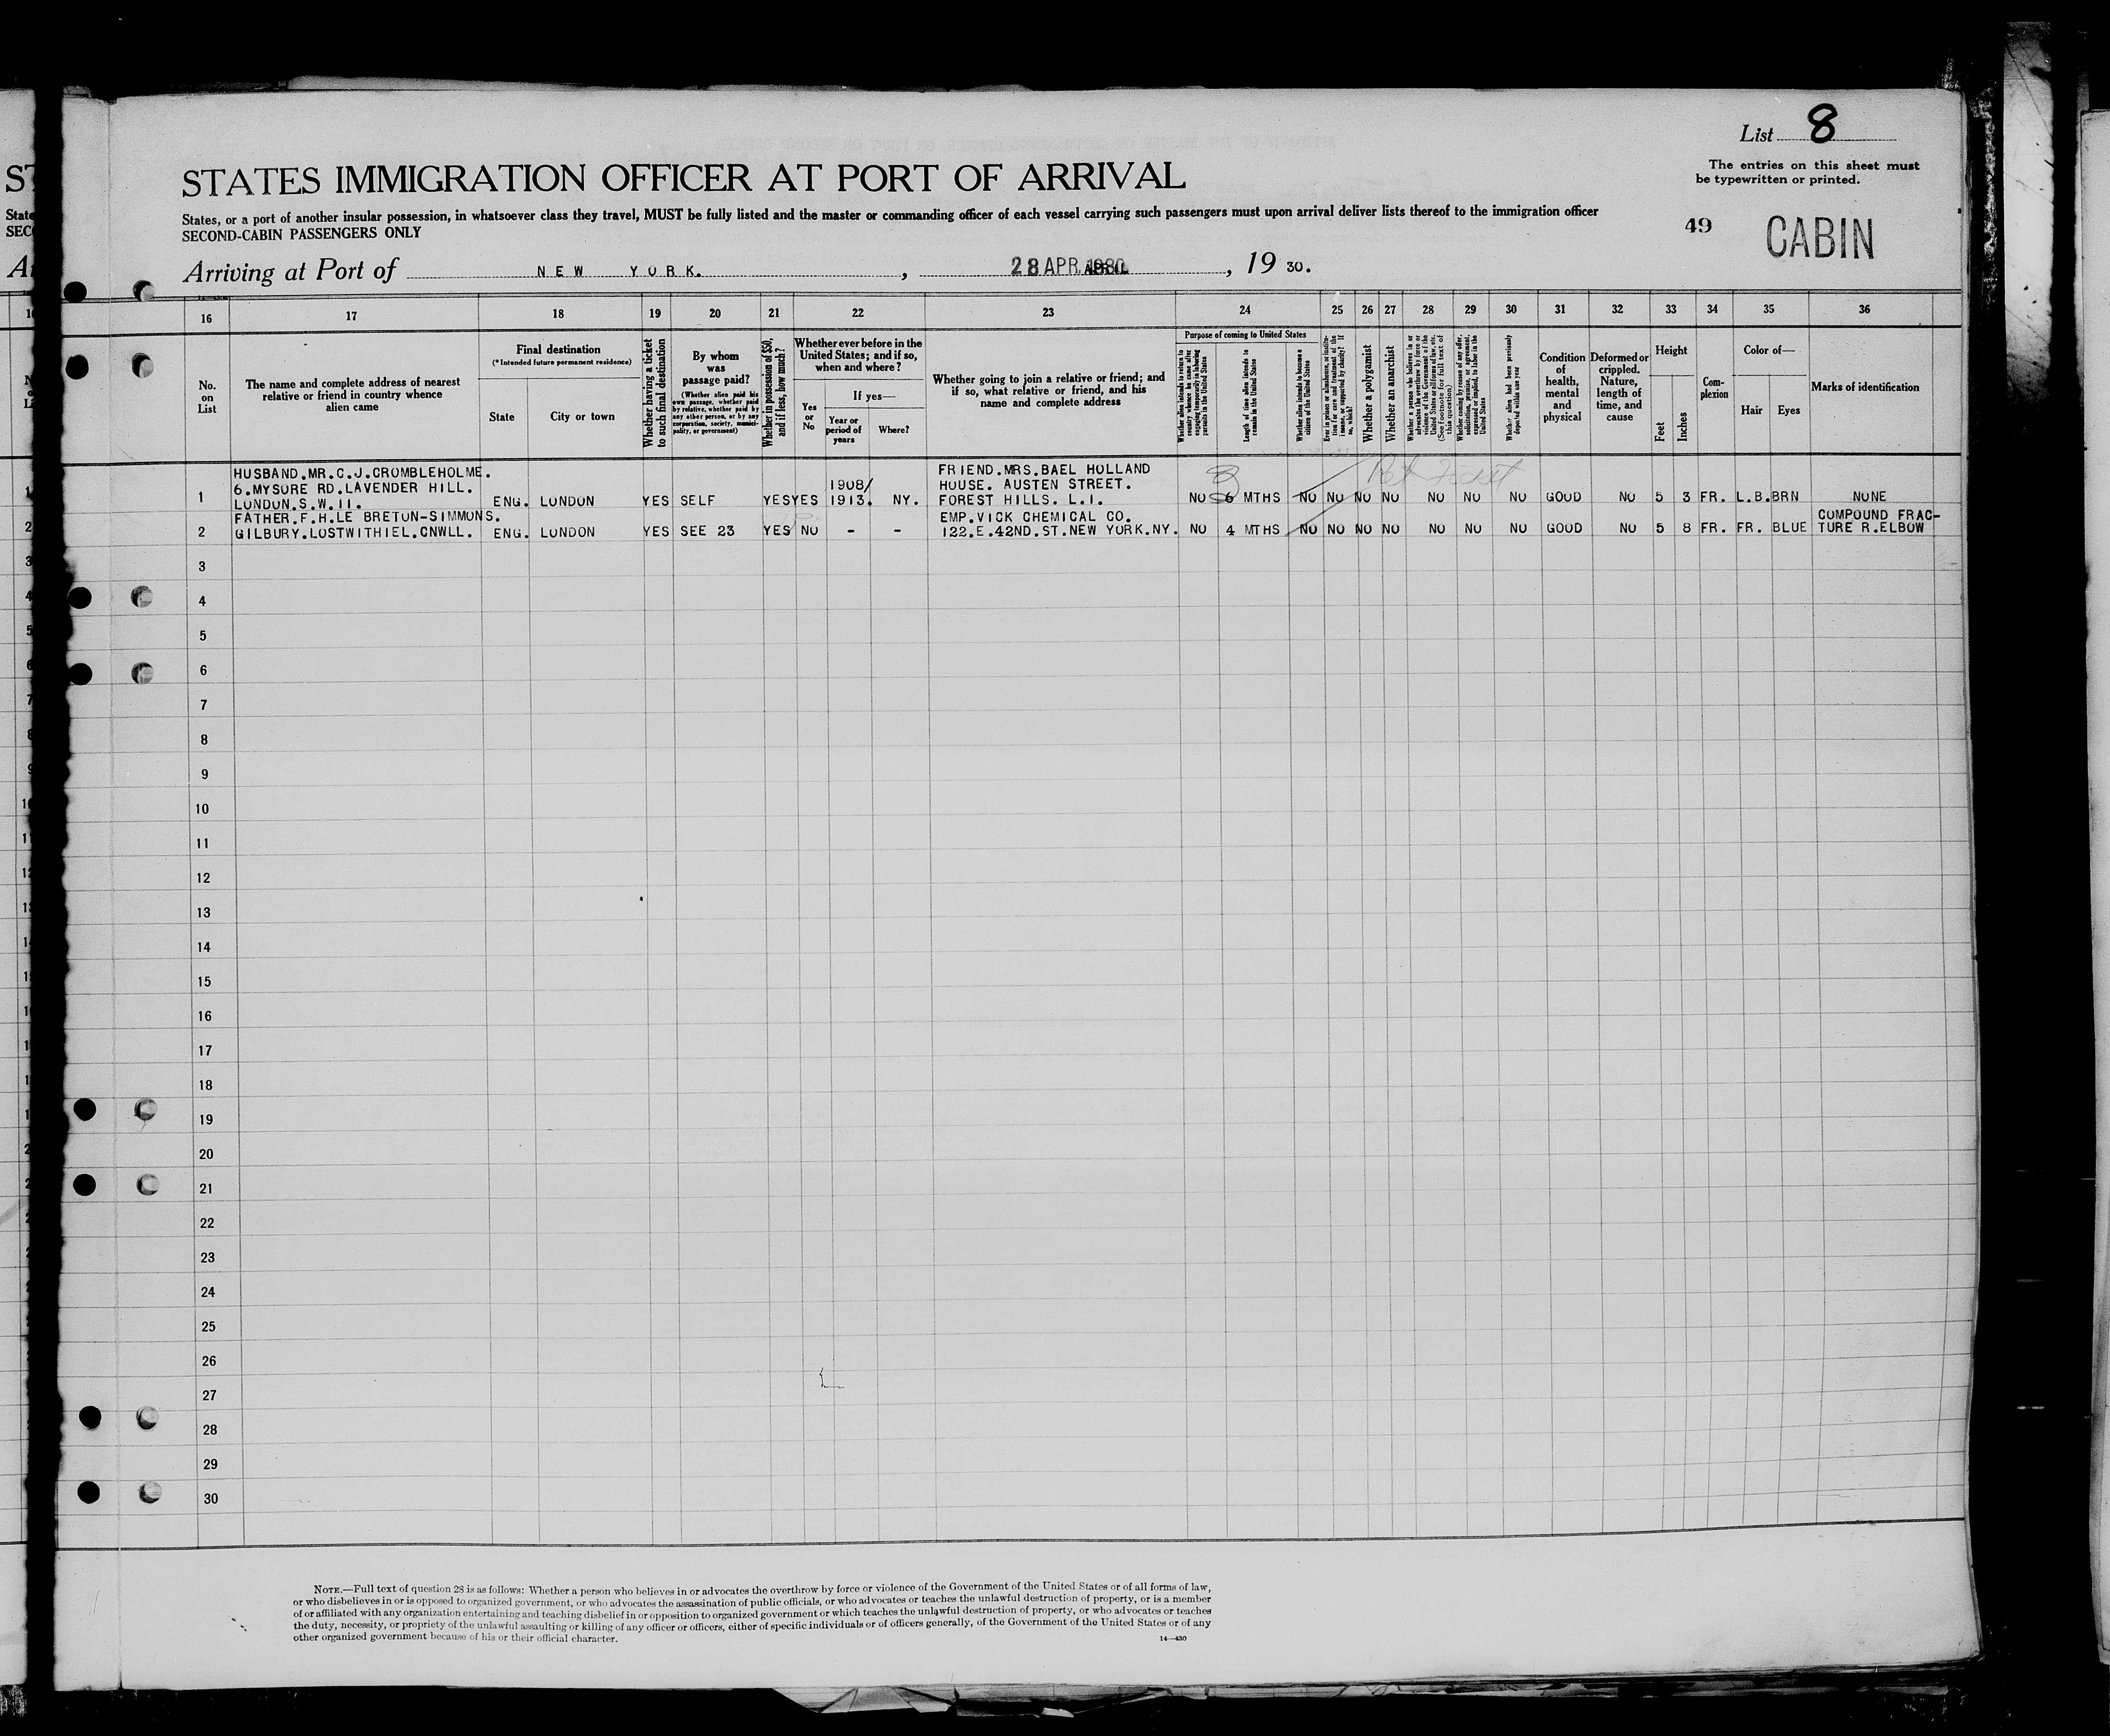 List 8
The entries on this sheet must
be typewritten or printed.
STATES IMMIGRATION OFFICER AT PORT OF ARRIVAL
States, or a port of another insular possession, in whatsoever class they travel, MUST be fully listed and the master or commanding officer of each vessel carrying such passengers must upon arrival deliver lists thereof to the immigration officer
SECOND-CABIN PASSENGERS ONLY
49 CABIN
Arriving at Port of NEW YORK. , 28 APR , 19 30.
16 17 18 19 20 21 22 23 24 25 26 27 28 29 30 31 32 33 34 35 36
No.
on
List
The name and complete address of nearest
relative or friend in country whence
alien came
Final destination
(*Intended future permanent residence)
State
City or town
Whether having a ticket
to such final destination
By whom
was
passage paid?
(Whether alien paid his
own passage, whether paid
by relative, whether paid by
any other person, or by any
corporation, society, munici-
pality, or government)
Whether in possession of $50,
and if less, how much?
Whether ever before in the
United States; and if so,
when and where?
Yes
or
No
If yes—
Year or
period of
years
Where?
Whether going to join a relative or friend; and
if so, what relative or friend, and his
name and complete address
Purpose of coming to United States
Whether alien intends to return to
country whence he came after
engaging temporarily in laboring
pursuits in the United States
Length of time alien intends to
remain in the United States
Whether alien intends to become a
citizen of the United States
Ever in prison or almshouse, or institu-
tion for care and treatment of the
insane, or supported by charity? If
so, which?
Whether a polygamist
Whether an anarchist
Whether a person who believes in or
advocates the overthrow by force or
violence of the Government of the
United States or all forms of law, etc.
(See footnote for full text of
this question)
Whether coming by reason of any offer,
solicitation, promise, or agreement,
expressed or implied, to labor in the
United States
Whether alien had been previously
deported within one year
Condition
of
health,
mental
and
physical
Deformed or
crippled.
Nature,
length of
time, and
cause
Height
Feet
Inches
Com-
plexion
Color of—
Hair
Eyes
Marks of identification
HUSBAND.MR.C.J.CROMBLEHOLME. FRIEND.MRS.BAEL HOLLAND
6.MYSORE RD.LAVENDER HILL. 1908/ HOUSE. AUSTEN STREET. 3
1 LONDON.S.W.11. ENG. LONDON YES SELF YES YES 1913. NY. FOREST HILLS. L.I. NO 6 MTHS NO NO NO NO NO NO NO GOOD NO 5 3 FR. L.B. BRN NONE
FATHER.F.H.LE BRETON-SIMMONS. EMP.VICK CHEMICAL CO. COMPOUND FRAC-
2 GILBURY.LOSTWITHIEL.CNWLL. ENG. LONDON YES SEE 23 YES NO - - 122.E.42ND.ST.NEW YORK.NY. NO 4 MTHS NO NO NO NO NO NO NO GOOD NO 5 8 FR. FR. BLUE TURE R.ELBOW
3
4
5
6
7
8
9
10
11
12
13
14
15
16
17
18
19
20
21
22
23
24
25
26
27
28
29
30
NOTE.—Full text of question 28 is as follows: Whether a person who believes in or advocates the overthrow by force or violence of the Government of the United States or of all forms of law,
or who disbelieves in or is opposed to organized government, or who advocates the assassination of public officials, or who advocates or teaches the unlawful destruction of property, or is a member
of or affiliated with any organization entertaining and teaching disbelief in or opposition to organized government or which teaches the unlawful destruction of property, or who advocates or teaches
the duty, necessity, or propriety of the unlawful assaulting or killing of any officer or officers, either of specific individuals or of officers generally, of the Government of the United States or of any
other organized government because of his or their official character.
14—430